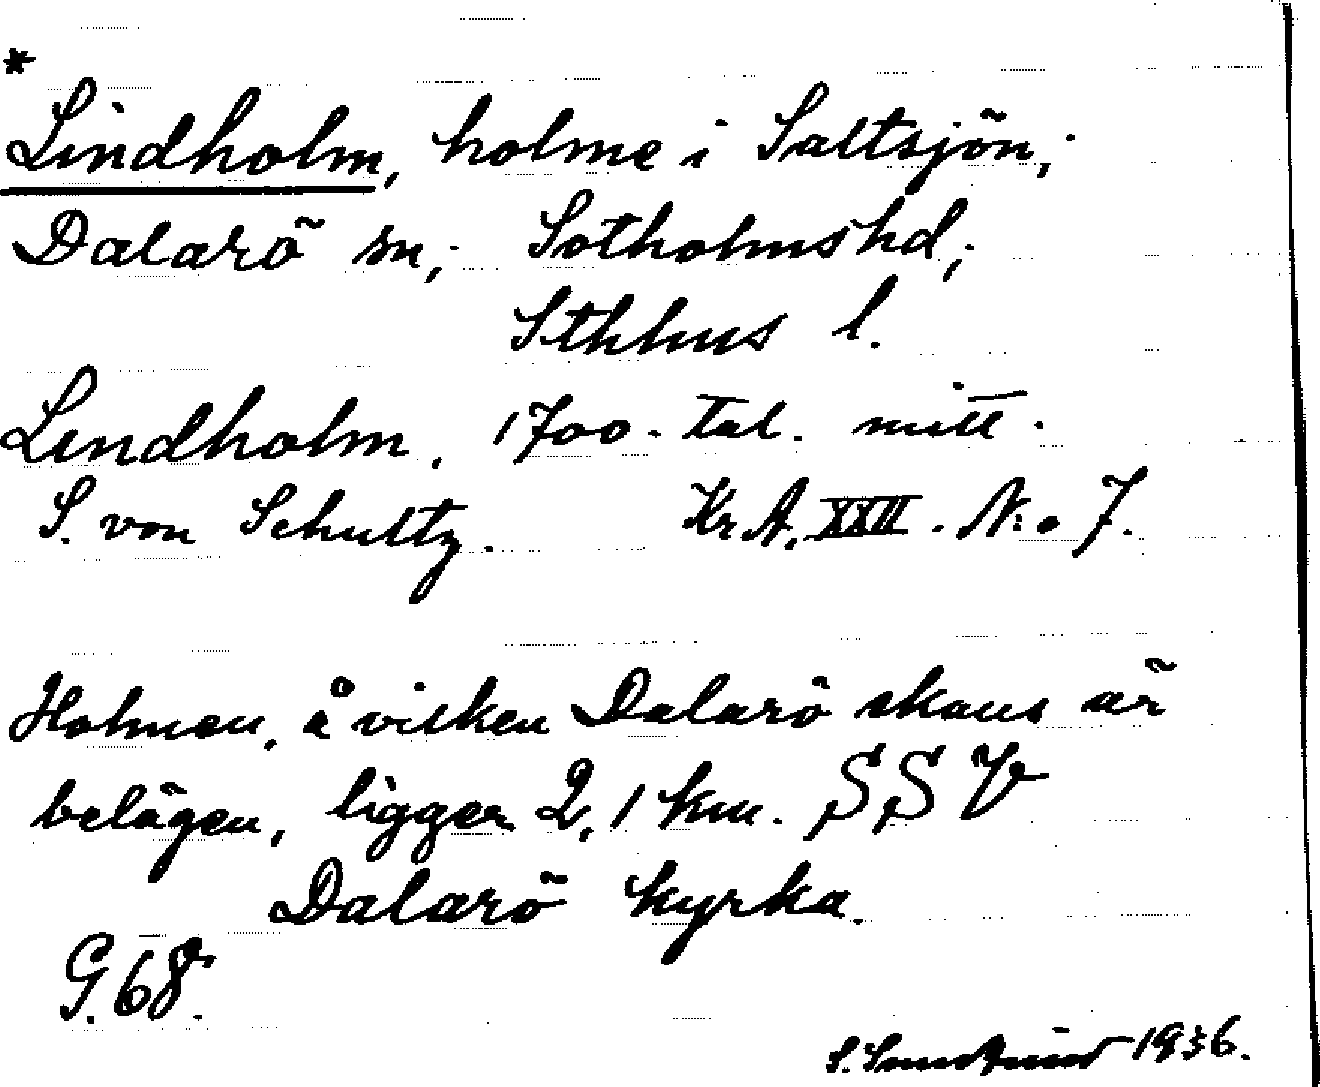 *
Lindholm, holme i Saltsjön,
Dalarö sn, Sotholms hd,
Sthlms l.
Lindholm. 1700-tal. mitt.
S. von Schultz. Kr. A. XXII. N:o 7.
Holmen, å vilken Dalarö skans är
belägen, ligger 2,1 km. SSV
Dalarö kyrka.
G. 68.
S. 1936.